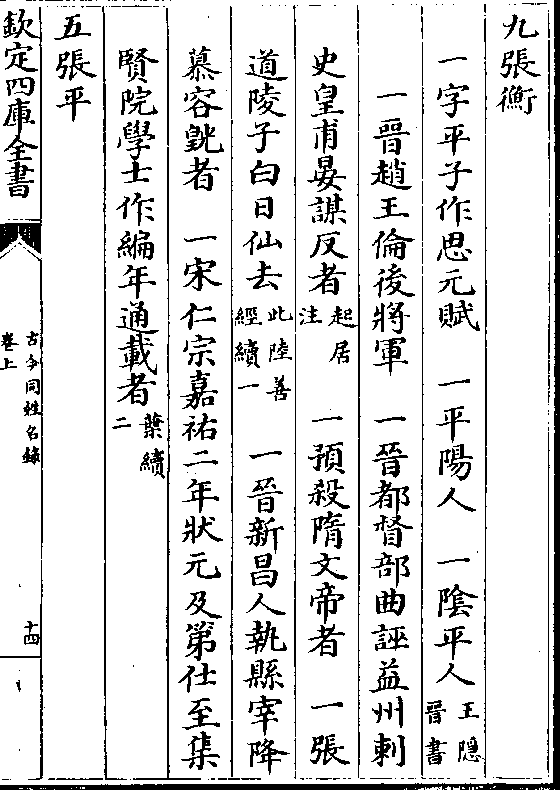 九張衡
一字平子作思元賦　一平陽人　一陰平人王隠晉書
一晉趙王倫後將軍　一晉都督部曲誣益州刺
史皇甫晏謀反者起居注　一預殺隋文帝者　一張
道陵子白日仙去此陸善經續一　一晉新昌人執縣宰降
慕容皝者　一宋仁宗嘉祐二年狀元及第仕至集
賢院學士作編年通載者葉續二
五張平
欽定四庫全書
古今同姓名錄
卷上
十四